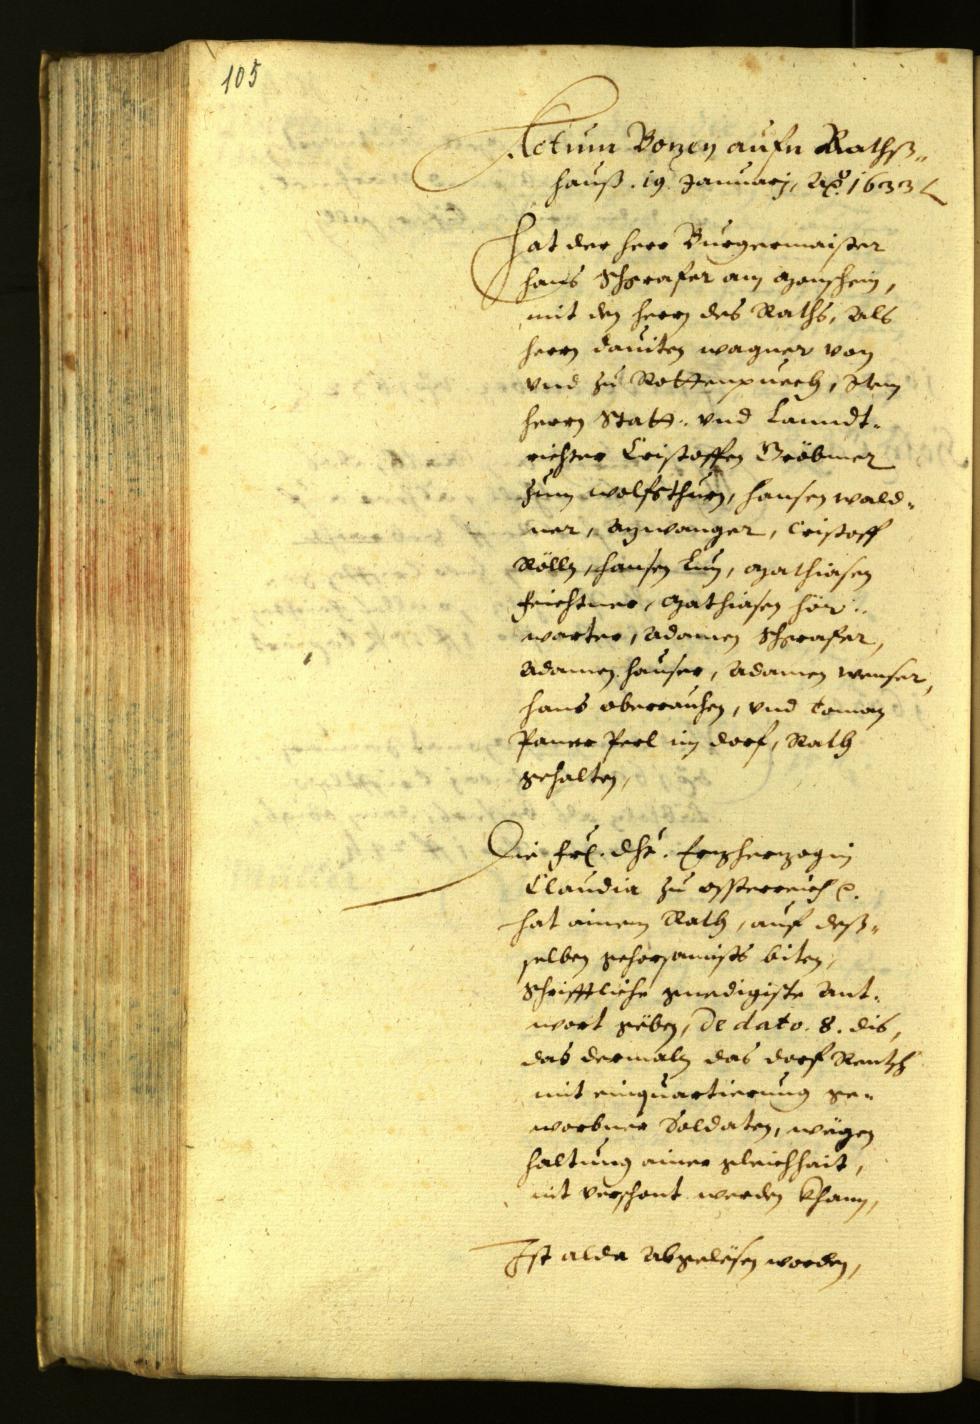 105
Actum Botzen aufn Rathß„
hauß . 19. Januarj, Aõ. 1633
Hat der herr Burgermaister
hans Schrafer am
mit den herrn des Raths, Als
herrn Dauiten wagner von
vnd zu Rottenpuech, Item
herrn Statt- vnd Lanndt-
richter Cristoffen Gröbmer
zum wolfsthurn, hansen wald-
ner, Cristoff
Rölln, hansen Mathiasen
feichtner, Mathiasen hör-
warter, Adamen Schrafer,
Adamen hauser, Adamen wenser,
hans oberrauhen, vnd toman
im dorf, Rath
gehalten,
Die frl. dht. Erzherzogin
Claudia zu Össterreich
hat ainem Rath, auf deß-
selben gehorsamists biten,
Schrifftliche gnedigiste Ant-
wort geben, De dato. 8. dis,
das dermaln das dorf Rentsch
mit einquartierung ge-
worbner Soldaten, wegen
haltung ainer gleichhait,
nit verschont werden khann,
Ist alda Abgelesen worden,